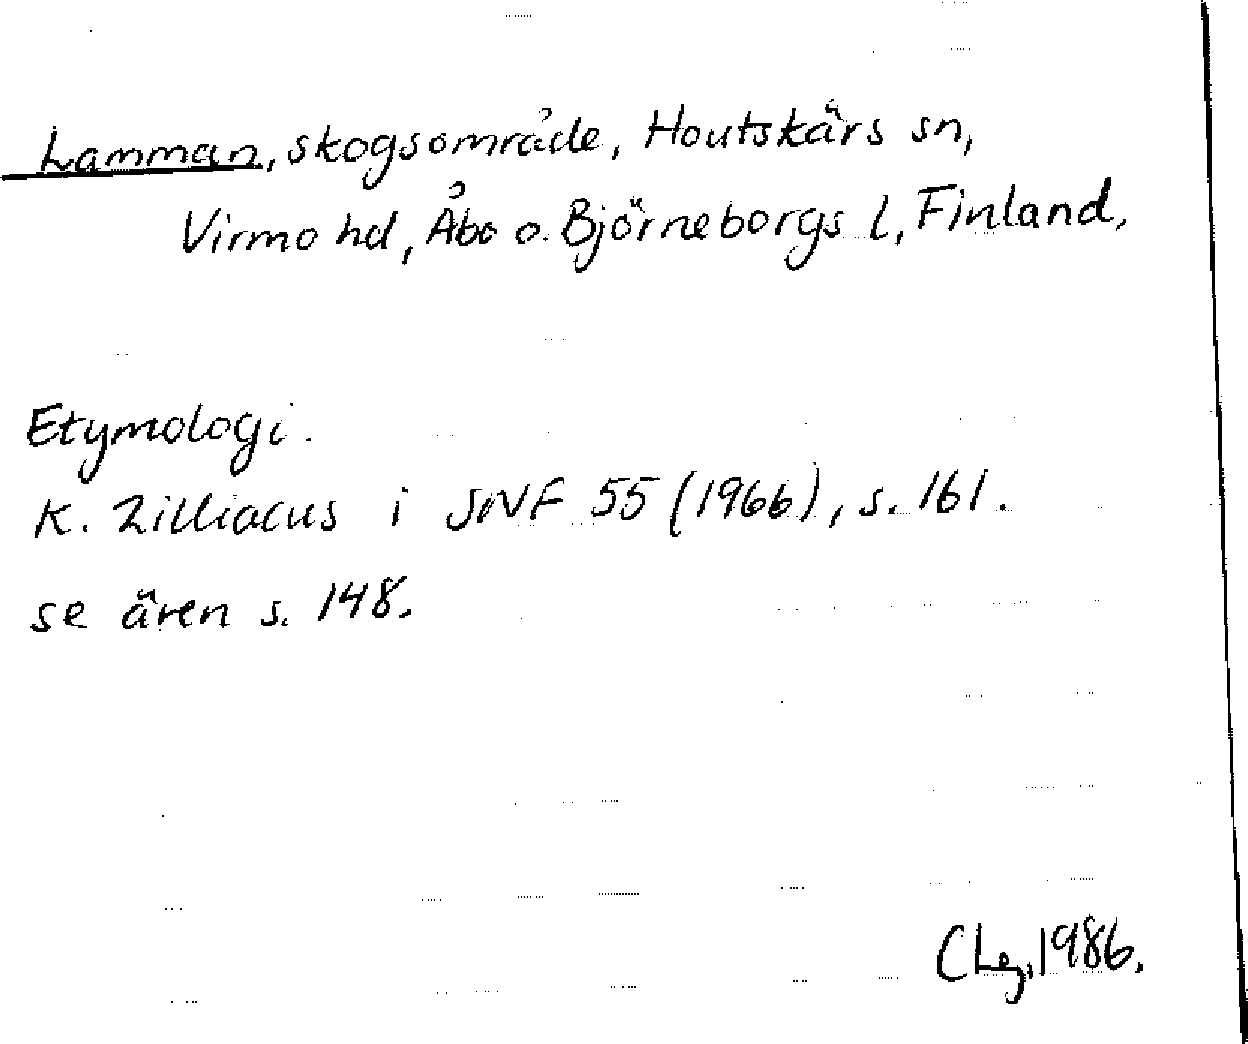 Lamman, skogsområde, Houtskärs sn,
Virmo hd, Åbo o. Björneborgs l, Finland,
Etymologi.
K. Zilliacus i SNF 55 (1966), s. 161.
se även s. 148.
CLg, 1986.